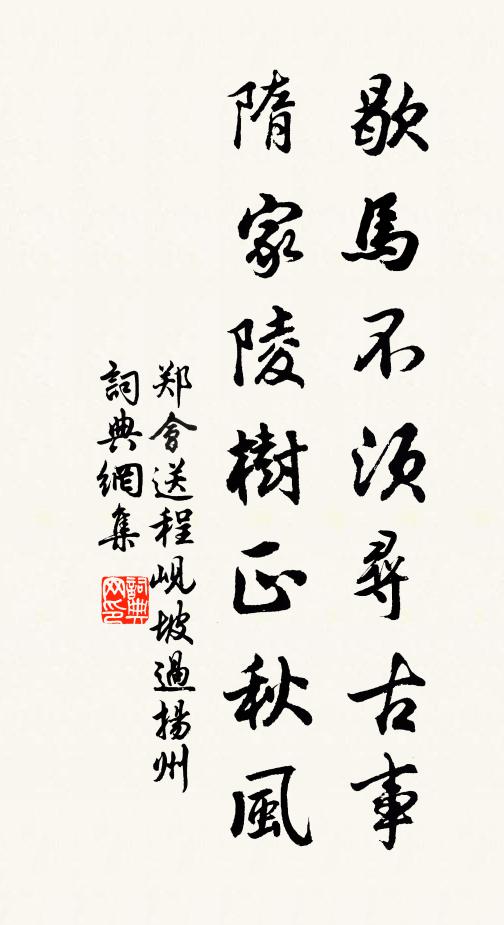 歇馬不須尋古事
隋家陵樹正秋風
郑會送程岘坡過揚州
詞典網集
詞典
网印